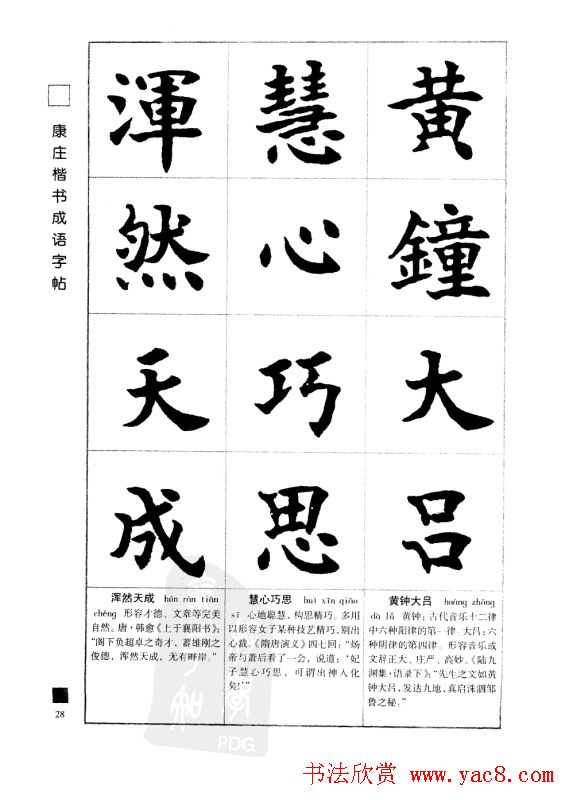 康庄楷书成语字帖
黄鐘大吕
慧心巧思
渾然天成
黄钟大吕 huáng zhōng
dà lǚ 黄钟：古代音乐十二律
中六种阳律的第一律。大吕：六
种阴律的第四律。形容音乐或
文辞正大、庄严、高妙。《陆九
渊集·语录下》：“先生之文如黄
钟大吕，发达九地，真启洙泗邹
鲁之秘。”
慧心巧思 huì xīn qiǎo
sī 心地聪慧，构思精巧。多用
以形容女子某种技艺精巧，别出
心裁。《隋唐演义》四七回：“炀
帝与萧后看了一会，说道：‘妃
子慧心巧思，可谓出神入化
矣！’”
浑然天成 hún rán tiān
chéng 形容才德、文章等完美
自然。唐·韩愈《上于襄阳书》：
“阁下负超卓之奇才，蓄雄刚之
俊德，浑然天成，无有畔岸。”
28
PDG
书法欣赏 www.yac8.com